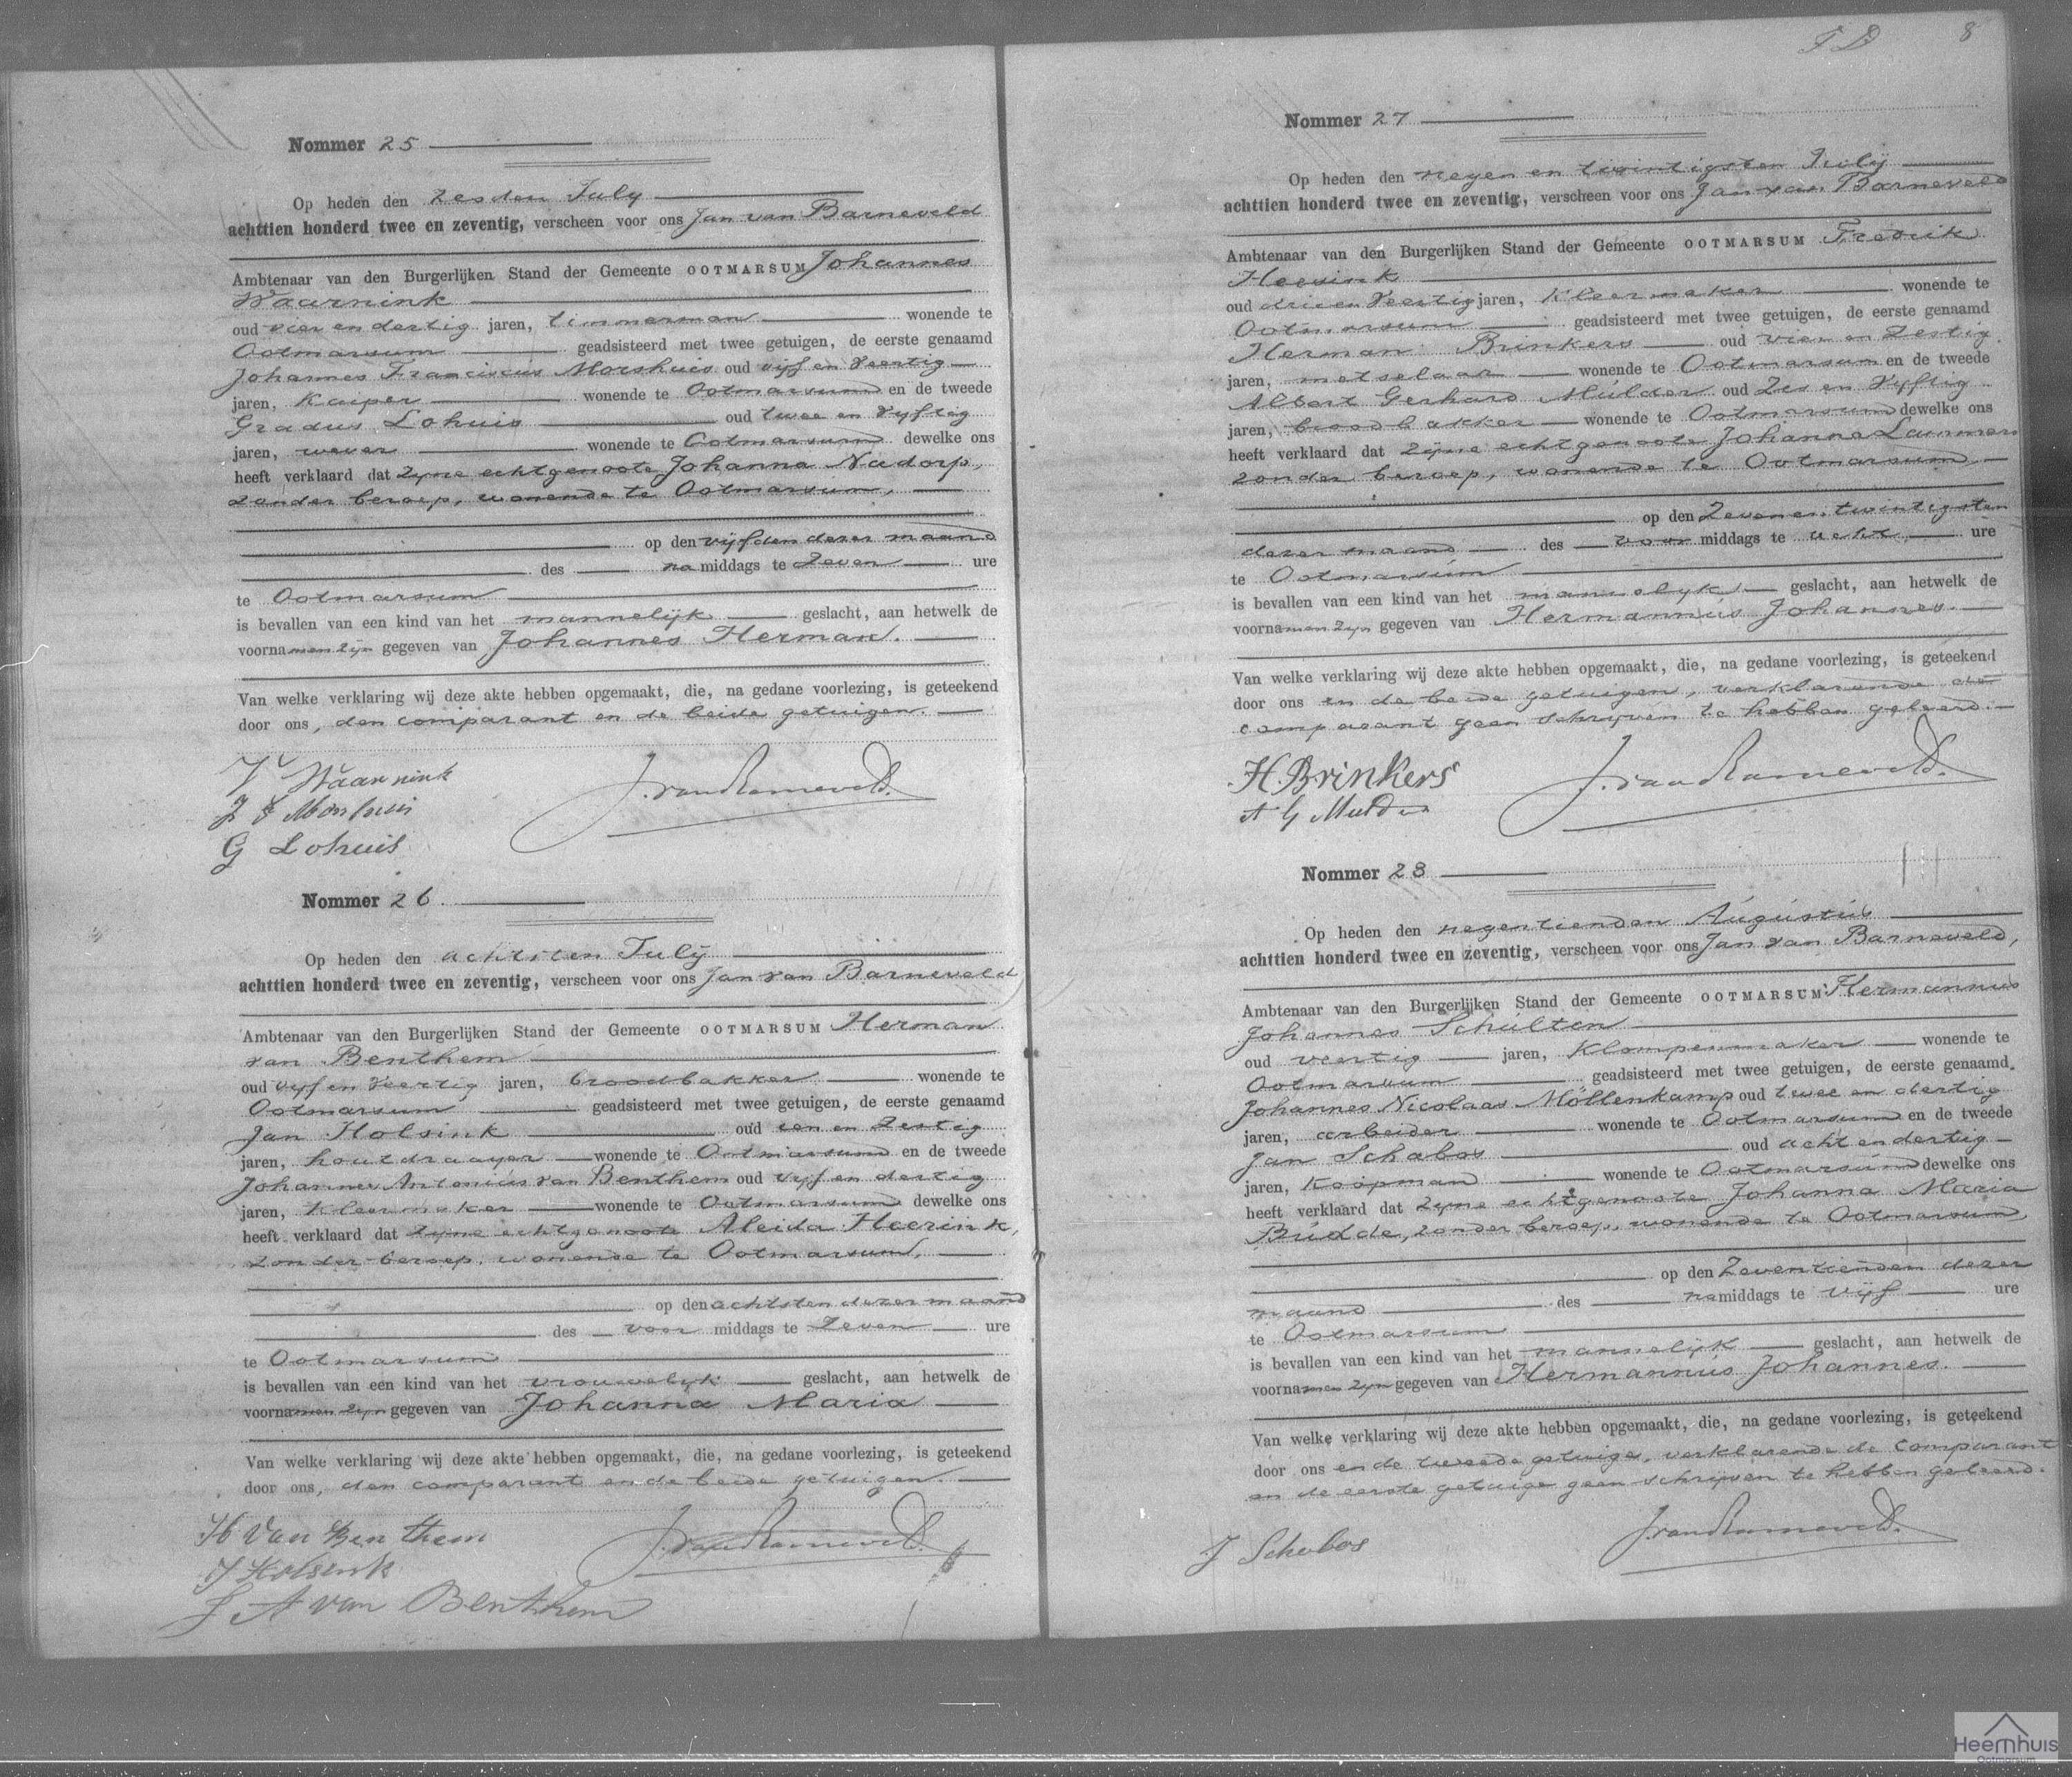 Nommer 25
Op heden den zesden July
achttien honderd twee en zeventig, verscheen voor ons Jan van Barneveld
Ambtenaar van den Burgerlijken Stand der Gemeente OOTMARSUM Johannes
Waarnink
oud vier en dertig jaren, timmerman wonende te
Ootmarsum geadsisteerd met twee getuigen, de eerste genaamd
Johannes Franciscus Morshuis oud vijf en veertig
jaren, Kuiper wonende te Ootmarsum en de tweede
Gradus Lohuis oud twee en vyftig
jaren, wever wonende te Ootmarsum dewelke ons
heeft verklaard dat zyne echtgenoote Johanna Nadorp,
zonder beroep, wonende te Ootmarsum,
op den vijfden dezer maand
des na middags te zeven ure
te Ootmarsum
is bevallen van een kind van het mannelijk geslacht, aan hetwelk de
voornamen zijn gegeven van Johannes Herman.
Van welke verklaring wij deze akte hebben opgemaakt, die, na gedane voorlezing, is geteekend
door ons, den comparant en de beide getuigen.
Waarnink
J F Morshuis
J. van Barneveld.
G Lohuis
Nommer 26
Op heden den achtsten July
achttien honderd twee en zeventig, verscheen voor ons Jan van Barneveld
Ambtenaar van den Burgerlijken Stand der Gemeente OOTMARSUM Herman
van Benthem
oud vyf en veertig jaren, broodbakker wonende te
Ootmarsum geadsisteerd met twee getuigen, de eerste genaamd
Jan Holsink oud een en zestig
jaren, houtdraayer wonende te Ootmarsum en de tweede
Johannes Antonius van Benthem oud vyf en dertig
jaren, kleermaker wonende te Ootmarsum dewelke ons
heeft verklaard dat zyne echtgenoote Aleida Heerink,
zonder beroep, wonende te Ootmarsum,
op den achtsten dezer maand
des voor middags te zeven ure
te Ootmarsum
is bevallen van een kind van het vrouwelyk geslacht, aan hetwelk de
voornamen zyn gegeven van Johanna Maria
Van welke verklaring wij deze akte hebben opgemaakt, die, na gedane voorlezing, is geteekend
door ons, den comparant en de beide getuigen.
H van Benthem
J. van Barneveld.
J Holsink
J A van Benthem
8
Nommer 27
Op heden den negen en twintigsten July
achttien honderd twee en zeventig, verscheen voor ons Jan van Barneveld
Ambtenaar van den Burgerlijken Stand der Gemeente OOTMARSUM Fredrik
Heesink
oud drie en veertig jaren, Kleermaker wonende te
Ootmarsum geadsisteerd met twee getuigen, de eerste genaamd
Herman Brinkers oud vier en zestig
jaren, metselaar wonende te Ootmarsum en de tweede
Albert Gerhard Mulder oud zes en vyftig
jaren, broodbakker wonende te Ootmarsum dewelke ons
heeft verklaard dat zyne echtgenoote Johanna Lammers
zonder beroep, wonende te Ootmarsum,
op den zeven en twintigsten
dezer maand des voor middags te acht ure
te Ootmarsum
is bevallen van een kind van het mannelyk geslacht, aan hetwelk de
voornamen zyn gegeven van Hermannus Johannes.
Van welke verklaring wij deze akte hebben opgemaakt, die, na gedane voorlezing, is geteekend
door ons en de beide getuigen, verklarende de
comparant geen schrijven te hebben geleerd.
H Brinkers
J. van Barneveld.
A G Mulder
Nommer 28
Op heden den negentienden Augustus
achttien honderd twee en zeventig, verscheen voor ons Jan van Barneveld,
Ambtenaar van den Burgerlijken Stand der Gemeente OOTMARSUM Hermannus
Johannes Schulten
oud veertig jaren, Klompenmaker wonende te
Ootmarsum geadsisteerd met twee getuigen, de eerste genaamd
Johannes Nicolaas Möllenkamp oud twee en dertig
jaren, arbeider wonende te Ootmarsum en de tweede
Jan Schabos oud acht en dertig
jaren, Koopman wonende te Ootmarsum dewelke ons
heeft verklaard dat zyne echtgenoote Johanna Maria
Budde, zonder beroep, wonende te Ootmarsum,
op den zeventienden dezer
maand des na middags te vijf ure
te Ootmarsum
is bevallen van een kind van het mannelyk geslacht, aan hetwelk de
voornamen zyn gegeven van Hermannus Johannes.
Van welke verklaring wij deze akte hebben opgemaakt, die, na gedane voorlezing, is geteekend
door ons en de tweede getuige, verklarende de comparant
en de eerste getuige geen schrijven te hebben geleerd.
J Schabos
J. van Barneveld.
Heemhuis
Ootmarsum